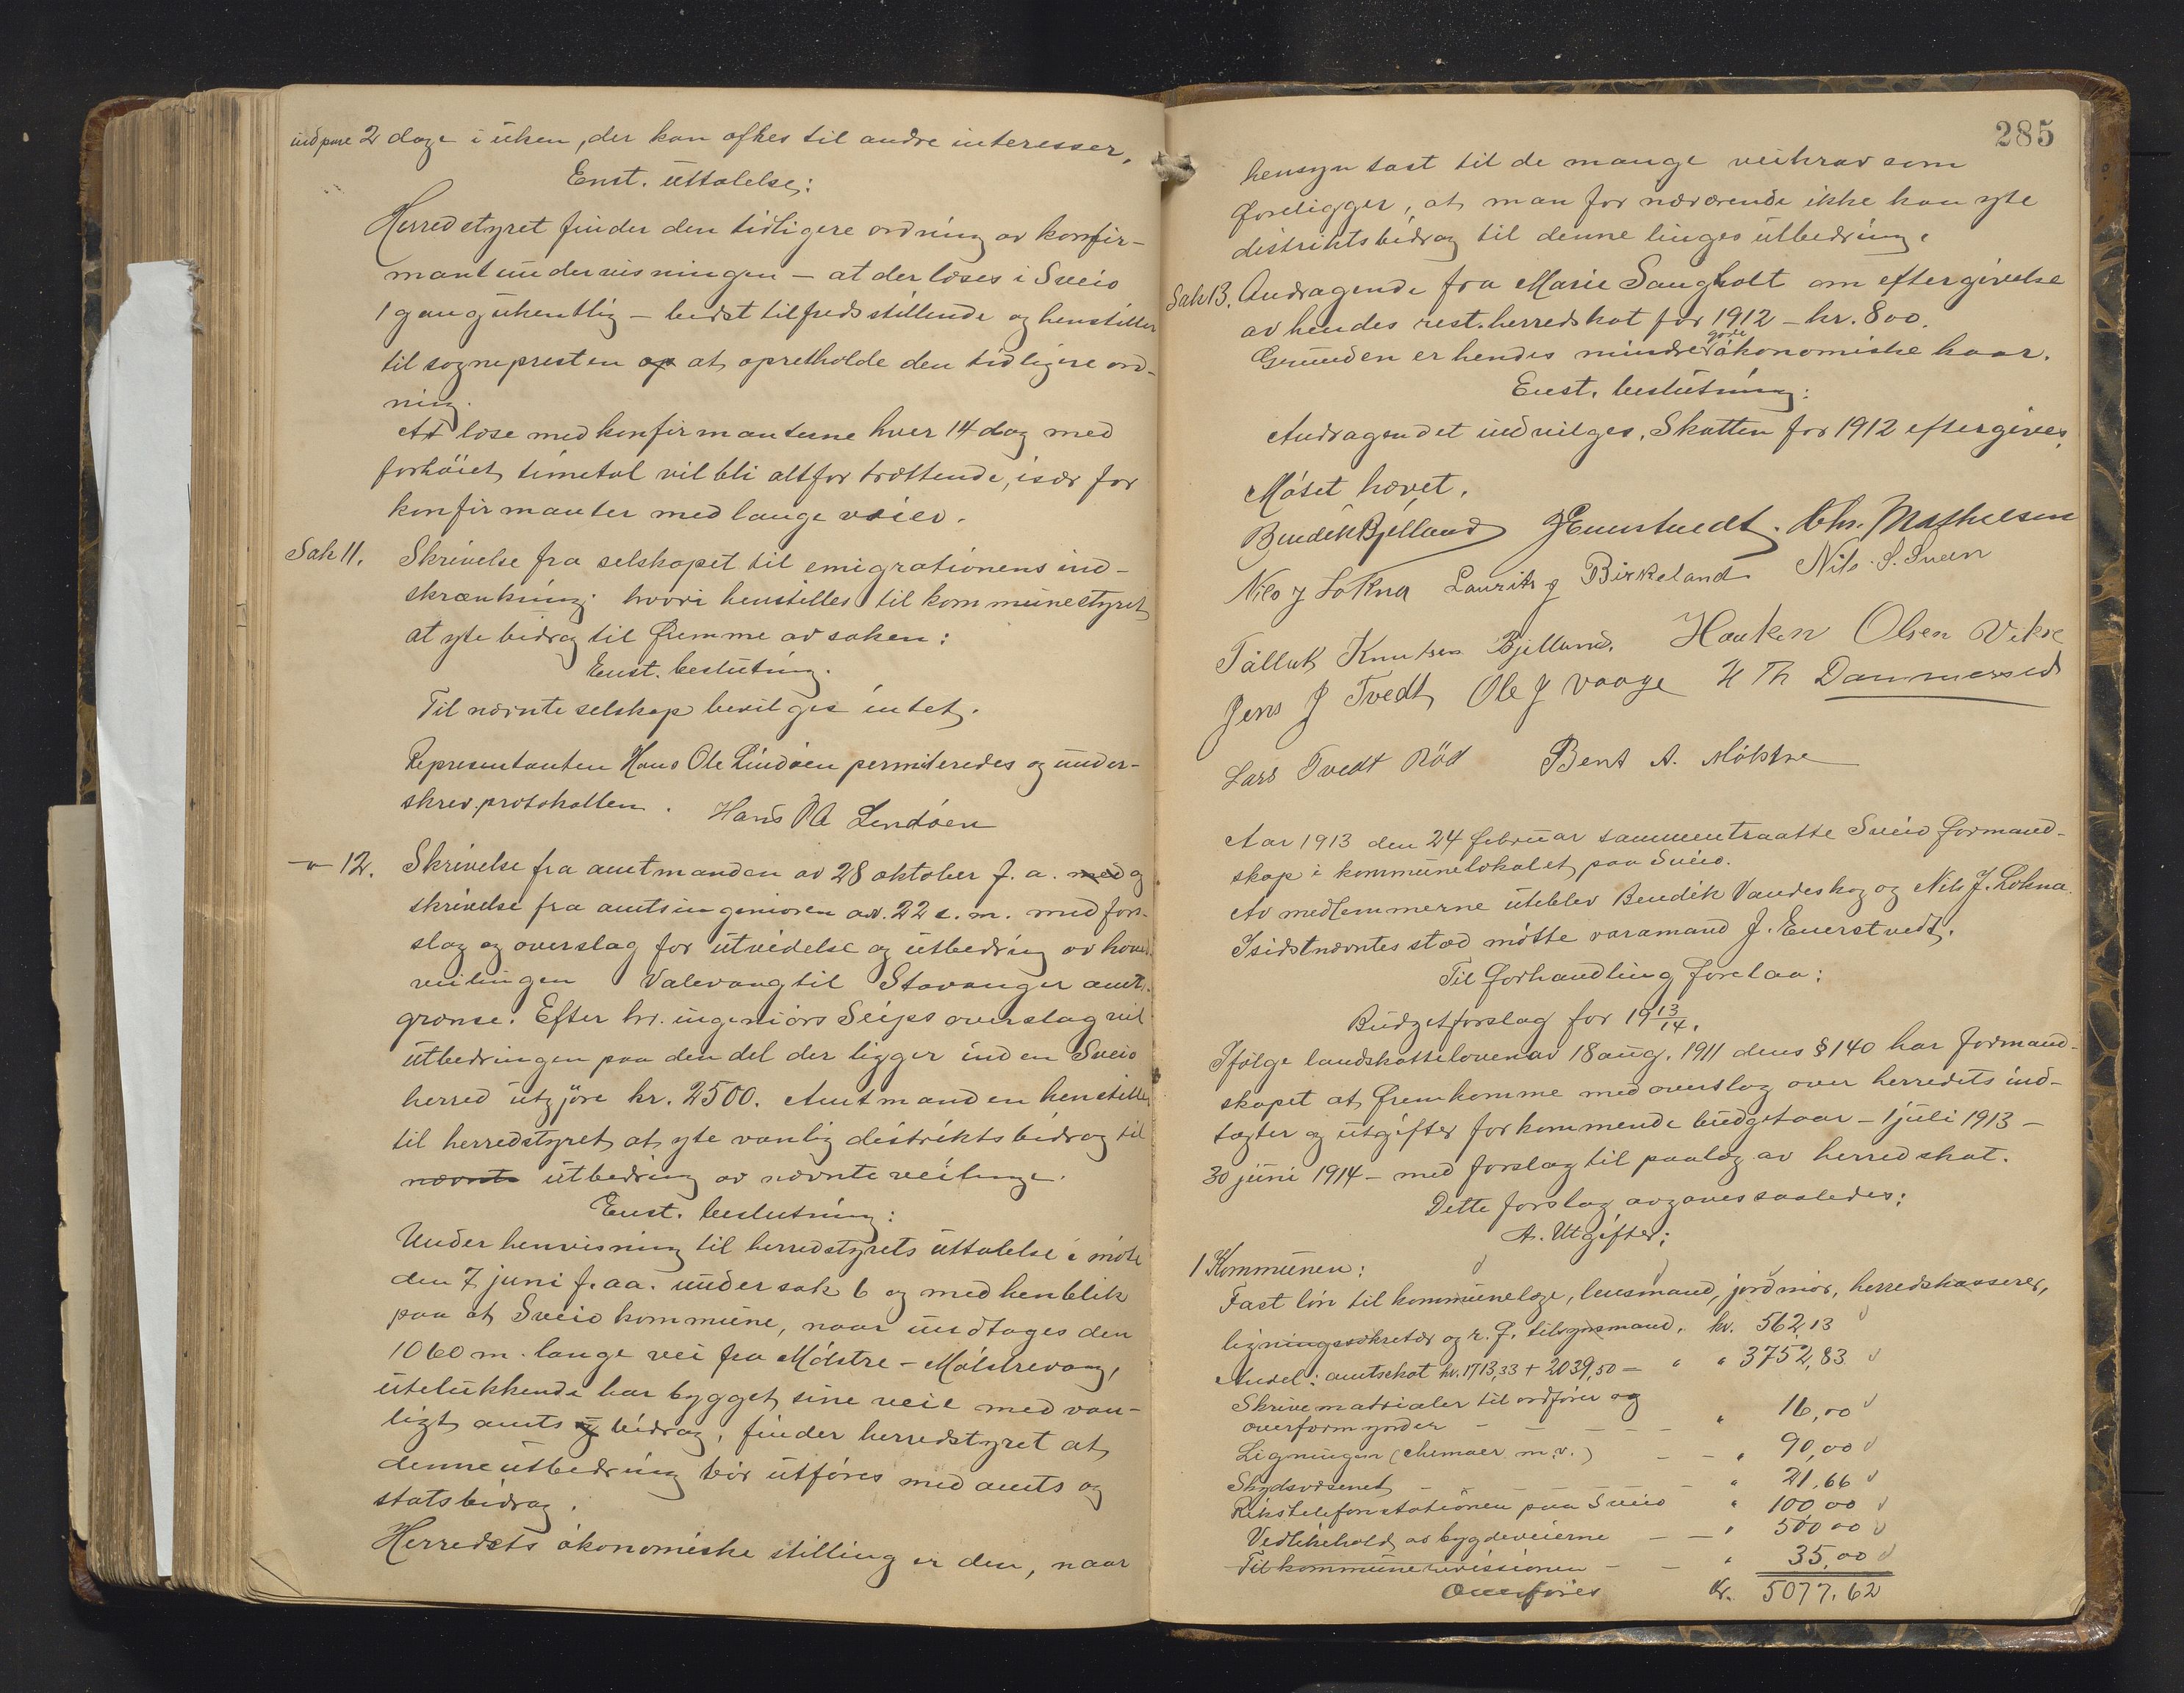 indspare 2 dage i uken, der kan ofres til andre interesser,
Enst. uttalelse:
Herredstyret finder den tidligere ordning av konfir-
mantundervisningen – at der læses i Sveio
1 gang ukentlig – bedst tilfredsstillende og henstiller
til sognepresten op at opretholde den tidligere ord-
ning.
At læse med konfirmanterne hver 14 dag med
forhöiet timetal vil bli altfor trættende, især for
konfirmanter med lange veier.
Sak 11. Skrivelse fra selskapet til emigrationens ind-
skrænkning hvori henstilles til kommunestyret
at yte bidrag til fremme av saken:
Enst. beslutning.
Til nævnte selskap bevilges intet.
Representanten Hans Ole Lindöen permiteredes og under-
skrev protokollen. Hans O Lindöen
–"– 12. Skrivelse fra amtmanden av 28 oktober f. a. med og
skrivelse fra amtsingeniören av 22 s. m. med fors-
slag og overslag for utvidelse og utbedring av hoved-
veilinjen Valevaag til Stavanger amts-
grænse. Efter hr. ingeniörs Seips overslag vil
utbedringen paa den del der ligger inden Sveio
herred utgjöre kr. 2500. Amtmanden henstiller
til herredstyret at yte vanlig distriktsbidrag til
nævnte utbedring av nævnte veilinje.
Enst. beslutning:
Under henvisning til herredstyrets uttalelse i möte
den 7 juni f. aa. under sak 6 og med henblik
paa at Sveio kommune, naar undtages den
1060 m. lange vei fra Mölstre – Mölstrevaag,
utelukkende har bygget sine veie med van-
ligt amts og bidrag, finder herredstyret at
denne utbedring bör utföres med amts og
statsbidrag.
Herredets ökonomiske stilling er den, naar
285
hensyn tast til de mange veikrav som
foreligger, at man for nærværende ikke kan yte
distriktsbidrag til denne linjes utbedring.
Sak 13. Andragende fra Marie Saugholt om eftergivelse
av hendes rest. herredskat for 1912 – kr. 8 00.
Grunden er hendes mindre gode ökonomiske kaar.
Enst. beslutning:
Andragendet indvilges. Skatten for 1912 eftergives.
Mötet hævet.
Bendik Bjelland J Enerstvedt. Chr. Mathiesen
Nils J Lokna Laurits J Birkeland Nils S. Sveen
Tollak Knutsen Bjelland. Haaken Olsen Vikse
Jens J Tvedt Ole J Vaage H Th Dammersed
Lars Tvedt Röd Bent A. Mölstre
Aar 1913 den 24 februar sammentraatte Sveio formand-
skap i kommunelokalet paa Sveio.
Av medlemmerne uteblev Bendik Vandeskog og Nils J. Lokna.
I sidstnævntes sted mötte varamand J. Enerstvedt.
Til forhandling forelaa:
Budgetforslag for 19 13/14.
Ifölge landskatteloven av 18 aug. 1911 dens § 140 har formand-
skapet at fremkomme med overslag over herredets ind-
tægter og utgifter for kommende budgetaar – 1 juli 1913 –
30 juni 1914 – med forslag til paalæg av herredskat.
Dette forslag avgaves saaledes:
A. Utgifter:
1 Kommunen:
Fast lön til kommunelæge, lensmand, jordmor, herredskasserer,
ligningssekretær og r. f. tilsynsmand. kr. 562,13
Andel: amtsskat kr. 1713,33 + 2039,50 – " " 3752,83
Skrivematrialer til ordförer og
overformynder – – – – " 16,00
Ligningen (skemaer m. v.) – – " 90,00
Skydsvæsenet – – – – " 21,66
Rikstelefonstationen paa Sveio " 100,00
Vedlikehold av bygdeveierne – – " 500 00
Til kommunerevisionen – – " 35,00
Overföres Kr. 5077,62